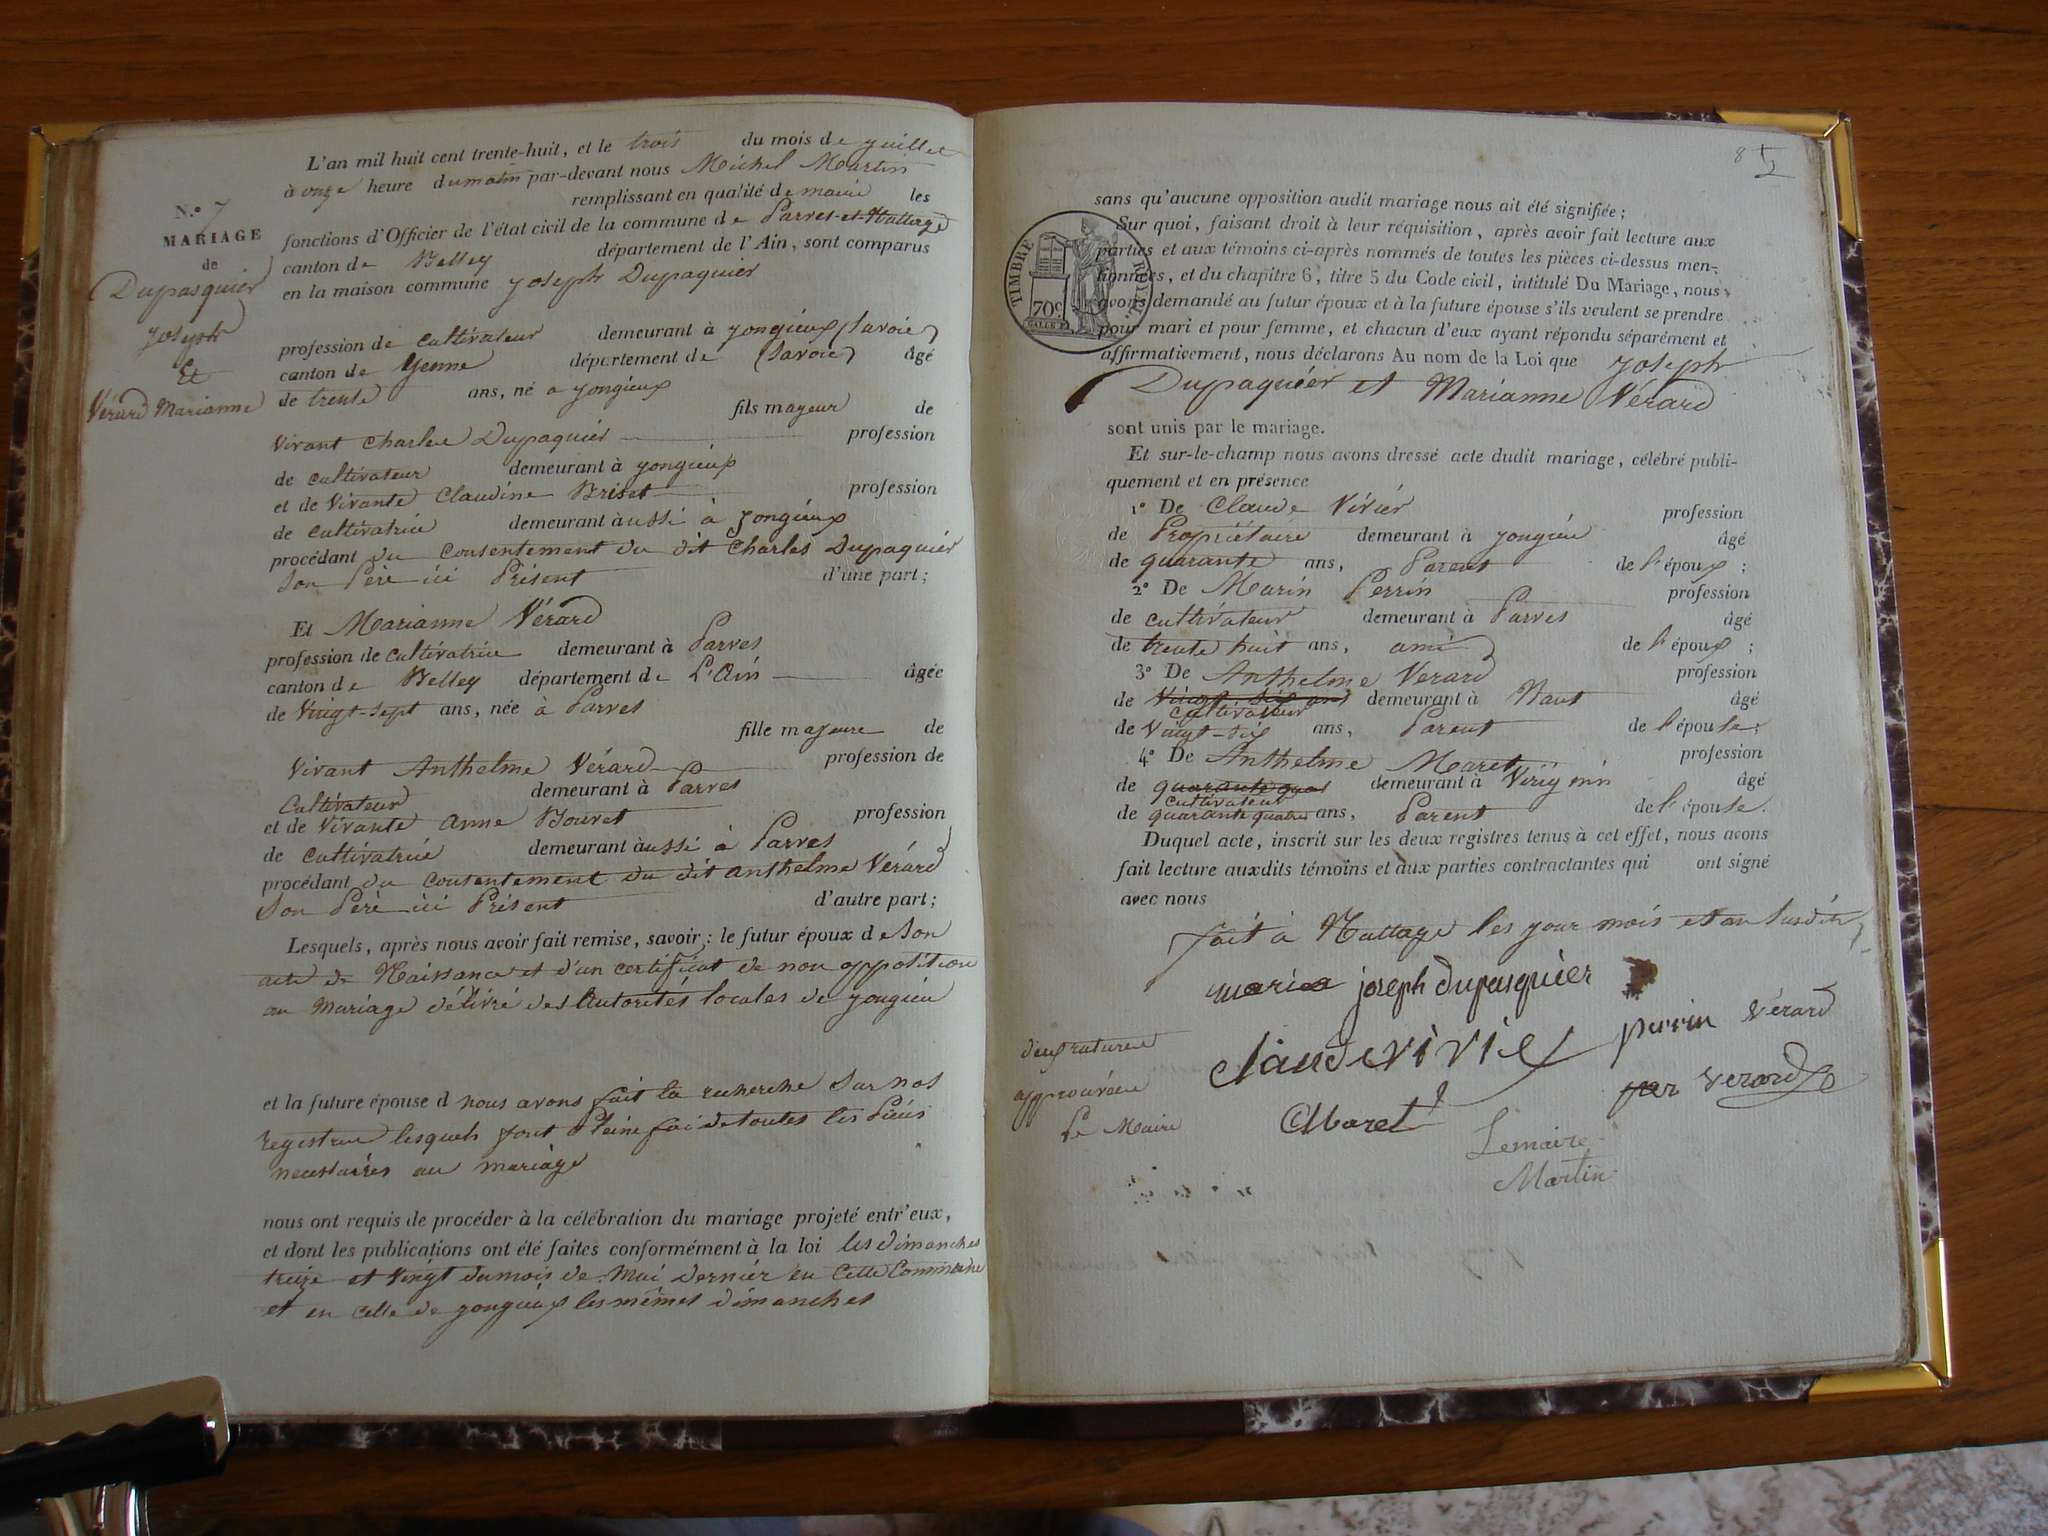 L'an mil huit cent trente-huit, et le trois du mois de juillet
à onze heure du matin par-devant nous Michel Martin
remplissant en qualité de maire les
fonctions d'Officier de l'état civil de la commune de Parves-et-Nattage
canton de Belley département de l'Ain, sont comparus
en la maison commune joseph Dupaquier
N.º 7
MARIAGE
de
Dupasquier
joseph
Et
Vérard Marianne
profession de cultivateur demeurant à yongieux (Savoie)
canton de Yenne département de (Savoie) âgé
de trente ans, né a yongieux
fils mayeur de
vivant charles Dupaquier profession
de cultivateur demeurant à yongieux
et de vivante Claudine Briset profession
de cultivatrice demeurant àussi à yongieux
procédant du consentement du dit Charles Dupaquier
son Père ici Présent d'une part;
Et Marianne Vérard
profession de cultivatrice demeurant à Parves
canton de Belley département de L'Ain âgée
de vingt-sept ans, née à Parves
fille majeure de
vivant Anthelme Vérard profession de
Cultivateur demeurant à Parves
et de vivante anne Bouvet profession
de cultivatrice demeurant àussi à Parves
procédant du consentement du dit anthelme Vérard
son Père ici Présent d'autre part;
Lesquels, après nous avoir fait remise, savoir: le futur époux de son
acte de Naissance et d'un certificat de non opposition
au Mariage délivré des Autorités locales de yongieu
et la future épouse d nous avons fait la recherche sur nos
registres lesquels font Pleine foi de toutes les Pièces
necessaires au mariage
nous ont requis de procéder à la célébration du mariage projeté entr'eux,
et dont les publications ont été faites conformément à la loi les dimanches
treize et vingt du mois de Mai dernier en cette Commune
et en celle de yongieux les mêmes dimanches
8
sans qu'aucune opposition audit mariage nous ait été signifiée;
Sur quoi, faisant droit à leur réquisition, après avoir fait lecture aux
parties et aux témoins ci-après nommés de toutes les pièces ci-dessus men-
tionnées, et du chapitre 6, titre 5 du Code civil, intitulé Du Mariage, nous
avons demandé au futur époux et à la future épouse s'ils veulent se prendre
pour mari et pour femme, et chacun d'eux ayant répondu séparément et
affirmativement, nous déclarons Au nom de la Loi que joseph
Dupaquier et Marianne Vérard
TIMBRE ROYAL
70c
sont unis par le mariage.
Et sur-le-champ nous avons dressé acte dudit mariage, célébré publi-
quement et en présence
1º De Claude Vivier profession
de Propriétaire demeurant à yongieu âgé
de quarante ans, Parent de l'époux;
2º De Marin Perrin profession
de cultivateur demeurant à Parves âgé
de trente huit ans, ami de l'époux;
3º De Anthelme Verard profession
de vingt six ans demeurant à Nant âgé
cultivateur
de vingt-six ans, Parent de l'épouse;
4º De Anthelme Maret profession
de quarante quat demeurant à Virignin âgé
cultivateur
de quarante quatre ans, Parent de l'épouse.
Duquel acte, inscrit sur les deux registres tenus à cet effet, nous avons
fait lecture auxdits témoins et aux parties contractantes qui ont signé
avec nous
fait à Nattage les jour mois et an susdits
joseph dupasquier
perrin Vérard
claude vivie
verard
Maret
deux ratures
approuvées
Le Maire
Lemaire
Martin